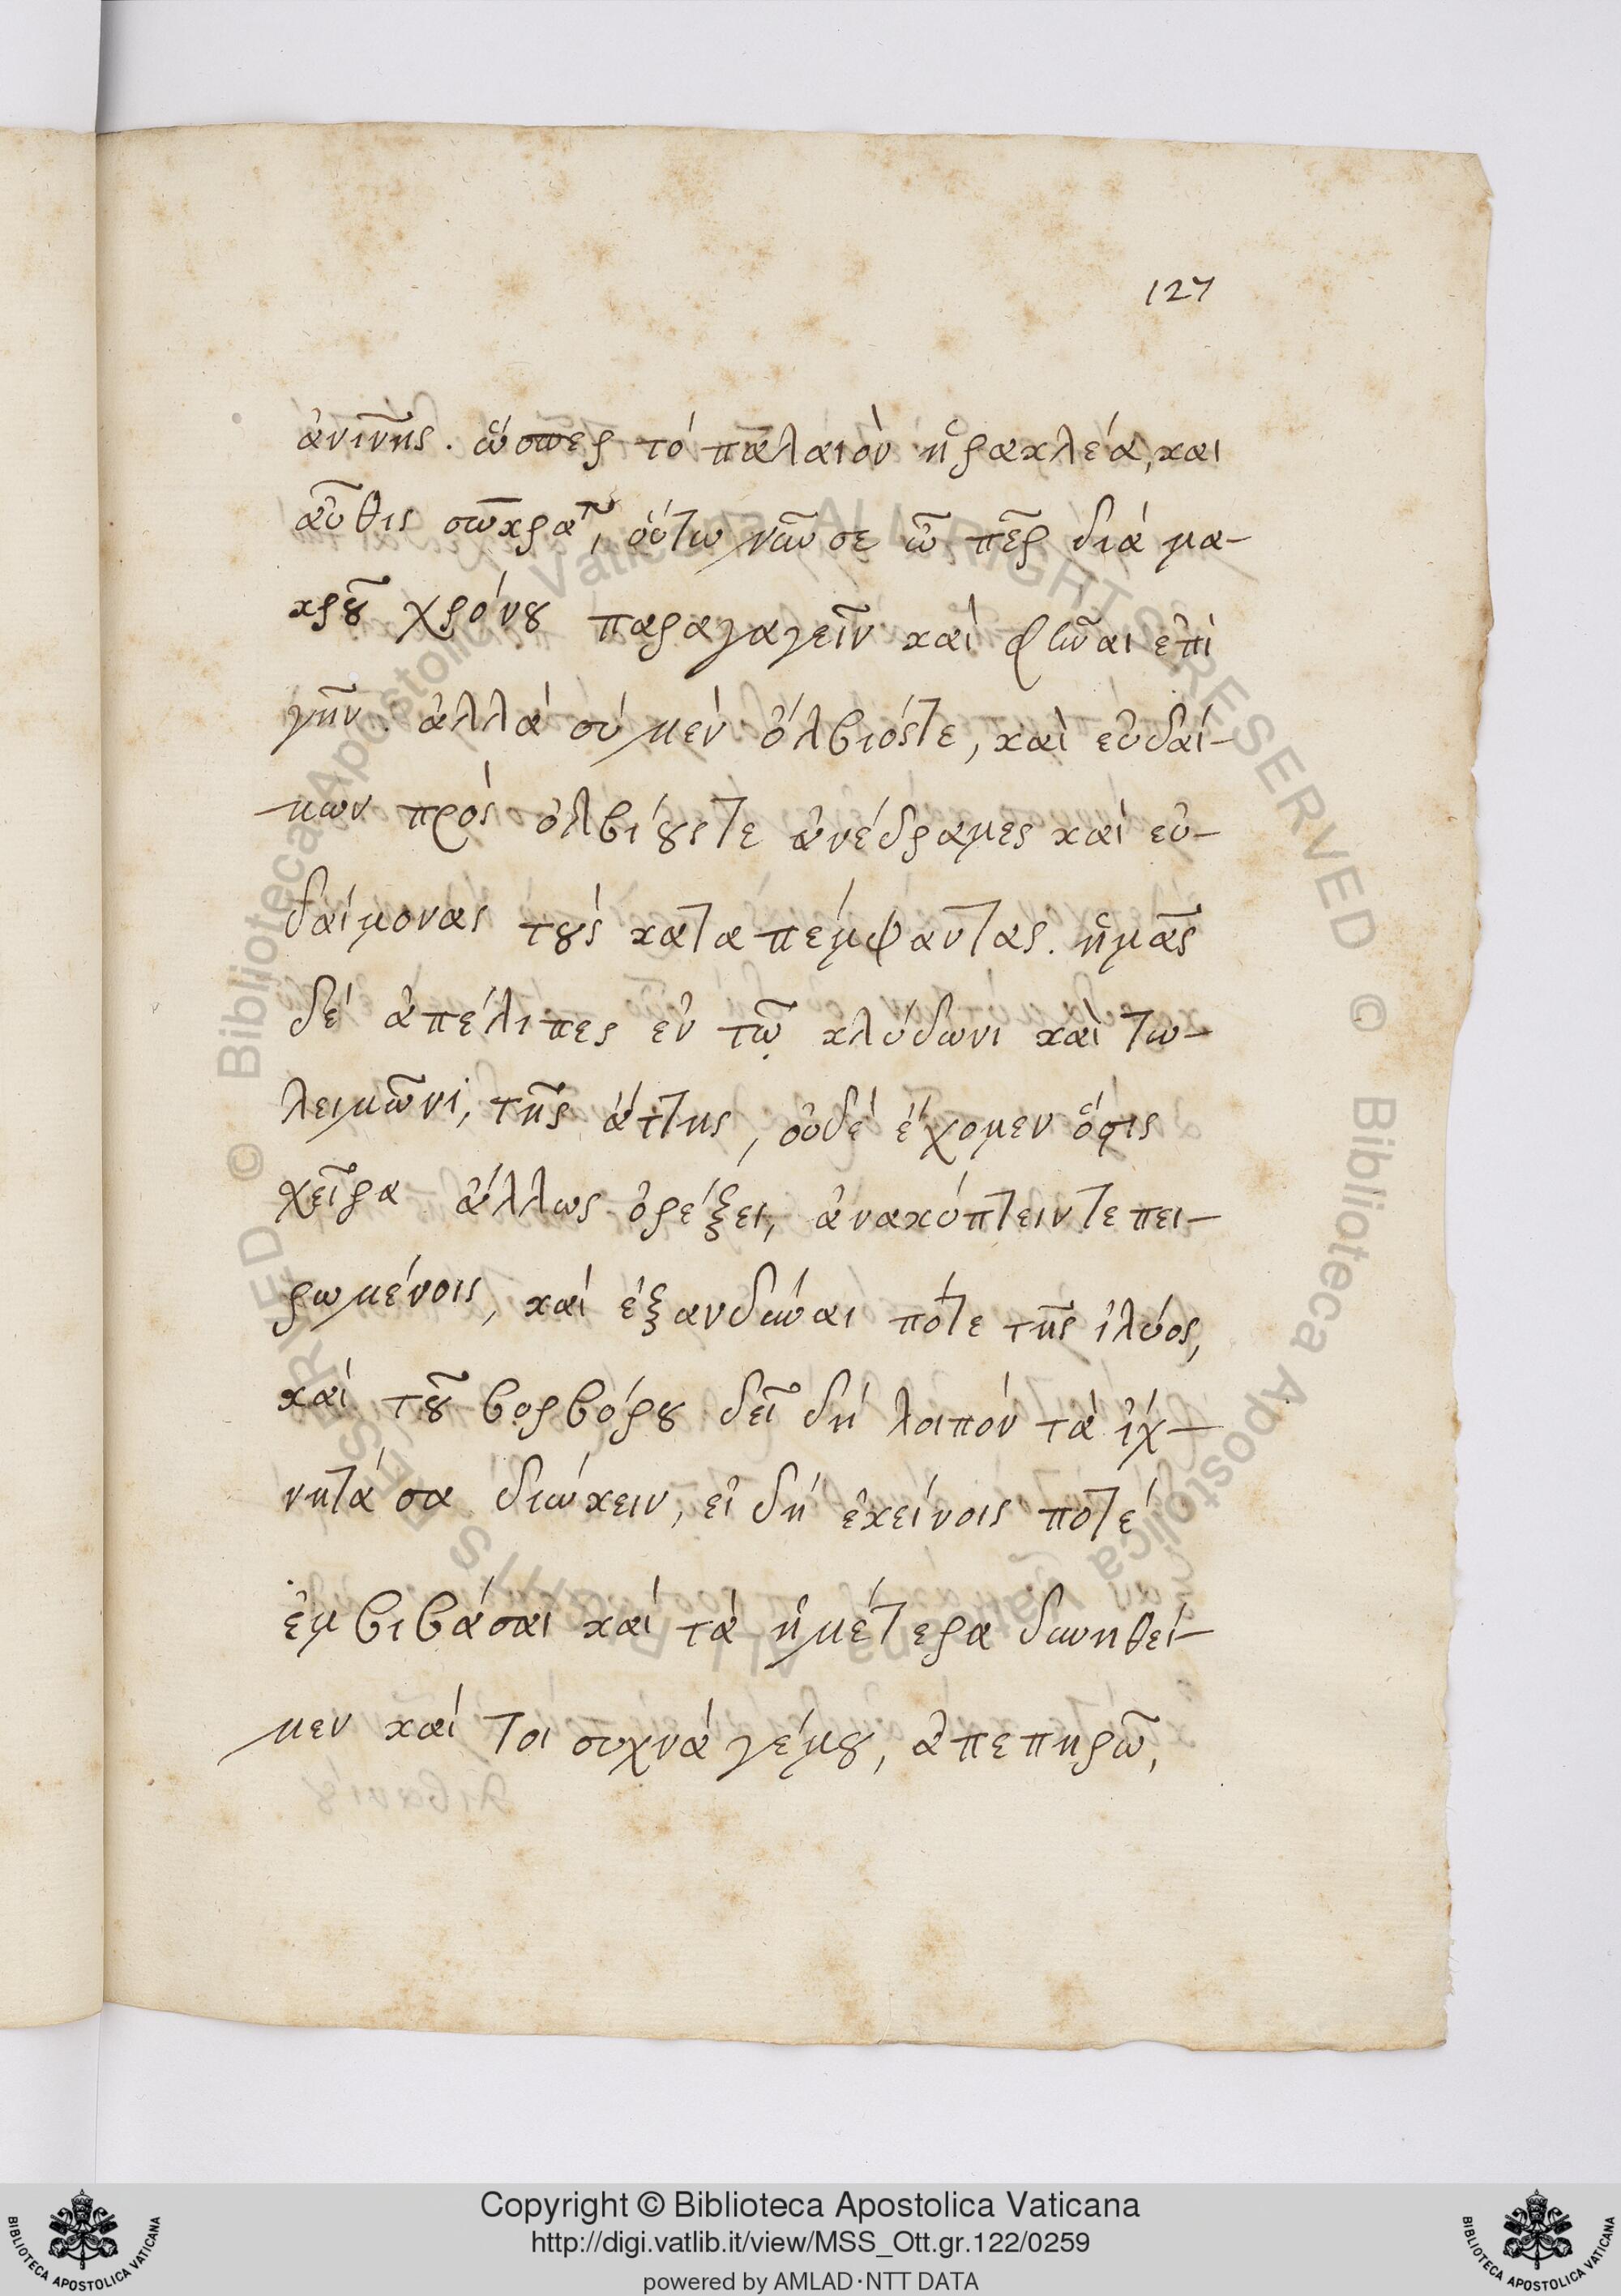 127
ἀνινῆς. ὥσπερ τό παλαιὸν ἡρακλέα, και
αὖθις σωκρατ, οὕτω νῦν σε ὦ πὲρ διά μα-
κροῦ χρόνου παραγαγεῖν καὶ φῦναι ἐπὶ
γῆν. ἀλλὰ σύ μὲν ὄλβιόστε, καὶ εὐδαί-
μων πρὸς ὀλβίουςτε ἀνέδραμες καὶ εὐ-
δαίμονας τοὺς καταπέμψαντας. ἡμᾶς
δέ ἀπέλιπες ἐν τῷ κλύδωνι καὶ τω-
λειμῶνι, τῆς ἄττης, οὐδέ ἔχομεν ὅστις
χεῖρα ἄλλως ὀρέξει, ἀνακύπτειντε πει-
ρωμένοις, καί ἐξανδῦναι πότε τῆς ἰλύος,
καί τοῦ βορβόρου δεῖ δή λοιπόν τά ἰχ-
νητά σα διώκειν, εἰ δή ἐκείνοις ποτέ
ἐμβιβάσαι καί τὰ ἡμέτερα δυνηθεί-
μεν καί τοι συχνά γέμου, ἀπεπηρῶ,
Copyright © Biblioteca Apostolica Vaticana
http://digi.vatlib.it/view/MSS_Ott.gr.122/0259
powered by AMLAD·NTT DATA
BIBLIOTECA APOSTOLICA VATICANA
BIBLIOTECA APOSTOLICA VATICANA